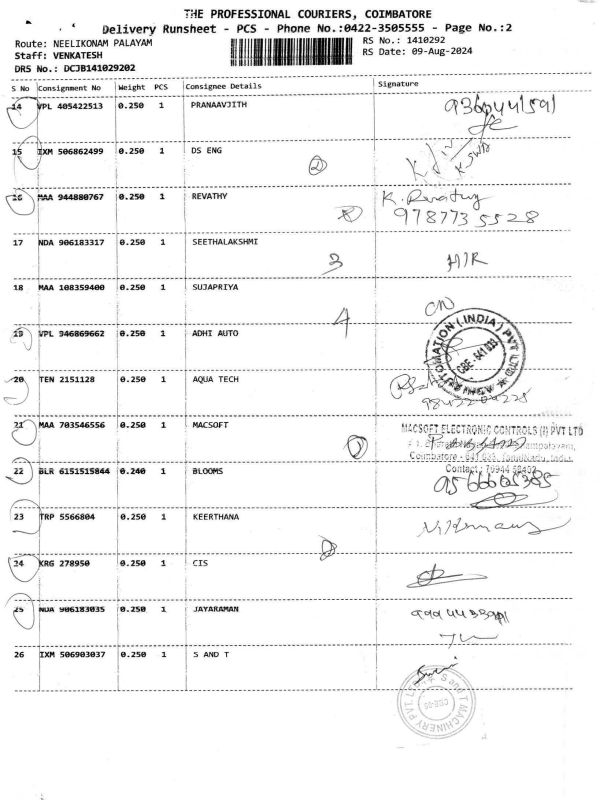 THE PROFESSIONAL COURIERS, COIMBATORE
Delivery Runsheet - PCS - Phone No.:0422-3505555 - Page No.:2
Route: NEELIKONAM PALAYAM RS No.: 1410292
Staff: VENKATESH RS Date: 09-Aug-2024
DRS No.: DCJB141029202
S No Consignment No Weight PCS Consignee Details Signature
14 VPL 405422513 0.250 1 PRANAAVJITH
15 IXM 506862499 0.250 1 DS ENG
2
16 MAA 944880767 0.250 1 REVATHY K. Revathy
9787735528
17 NDA 906183317 0.250 1 SEETHALAKSHMI
3
18 MAA 108359400 0.250 1 SUJAPRIYA
4
19 VPL 946869662 0.250 1 ADHI AUTO
AUTOMATION (INDIA) PVT LTD
CBE-641 035
20 TEN 2151128 0.250 1 AQUA TECH
21 MAA 703546556 0.250 1 MACSOFT MACSOFT ELECTRONIC CONTROLS (I) PVT LTD
Coimbatore - 641 035, Tamilnadu, India
22 BLR 6151515844 0.240 1 BLOOMS
23 TRP 5566804 0.250 1 KEERTHANA
24 KRG 278950 0.250 1 CIS
25 NDA 906183035 0.250 1 JAYARAMAN
26 IXM 506903037 0.250 1 S AND T
S and T MACHINERY PVT. LTD